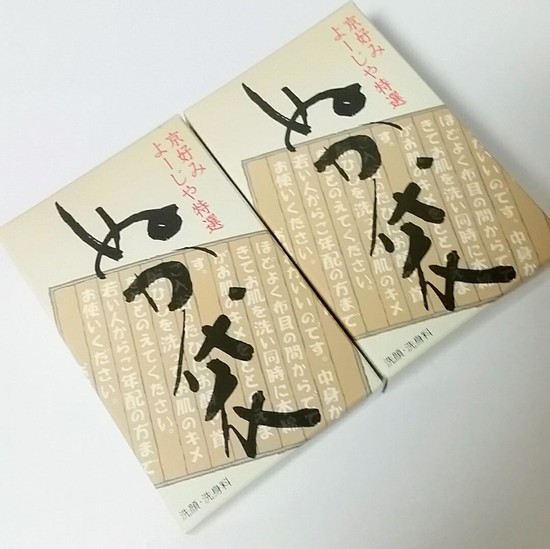 京好み
よーじや特選
ぬか袋
いいのです。中身が
ほどよく布目の間からで
きてお肌を洗い同時に
お肌のキメ
ととのえてください。
若い人からご年配の方まで
お使いください。
洗顔・洗身料
京好み
よーじや特選
ぬか袋
いいのです。中身が
ほどよく布目の間からで
きてお肌を洗い同時に
す。
お肌のキメ
ととのえてください。
若い人からご年配の方まで
お使いください。
洗顔・洗身料